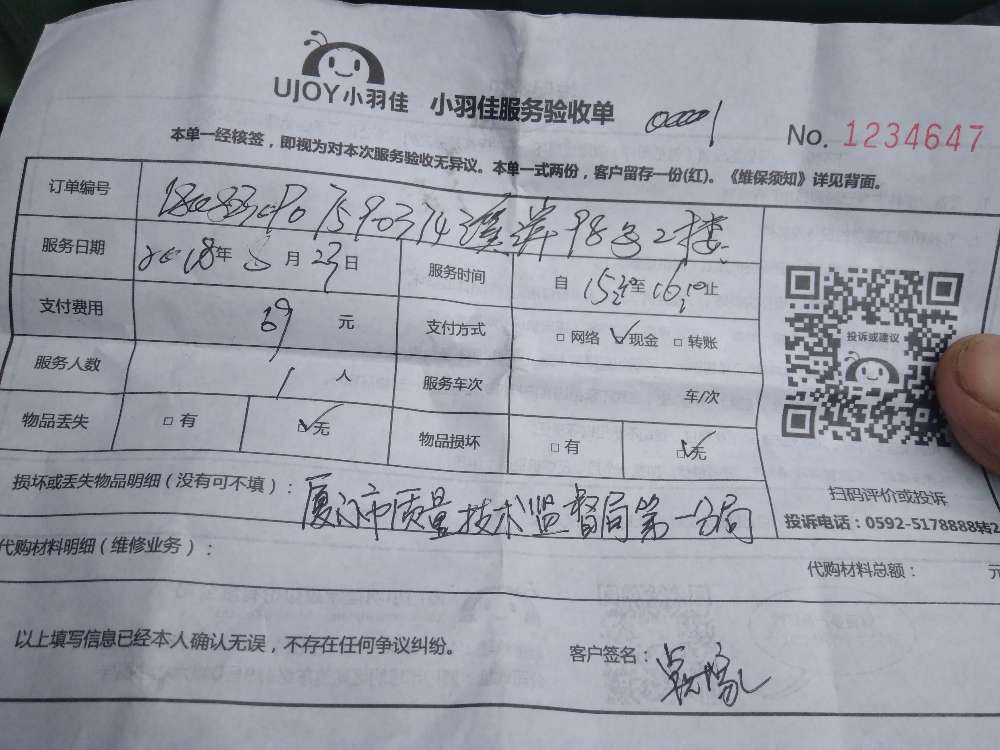 UJOY小羽佳 小羽佳服务验收单 00001
No. 1234647
本单一经核签，即视为对本次服务验收无异议。本单一式两份，客户留存一份(红)。《维保须知》详见背面。
订单编号 98号2楼
服务日期 2018年 8月 23日 服务时间 自 至 止
支付费用 元 支付方式 □网络 ☑现金 □转账
服务人数 1 人 服务车次 车/次
物品丢失 □有 ☑无 物品损坏 □有 ☑无
投诉或建议
扫码评价或投诉
投诉电话：0592-5178888转2
损坏或丢失物品明细（没有可不填）： 厦门市质量技术监督局第一分局
代购材料明细（维修业务）：
代购材料总额： 元
以上填写信息已经本人确认无误，不存在任何争议纠纷。
客户签名：